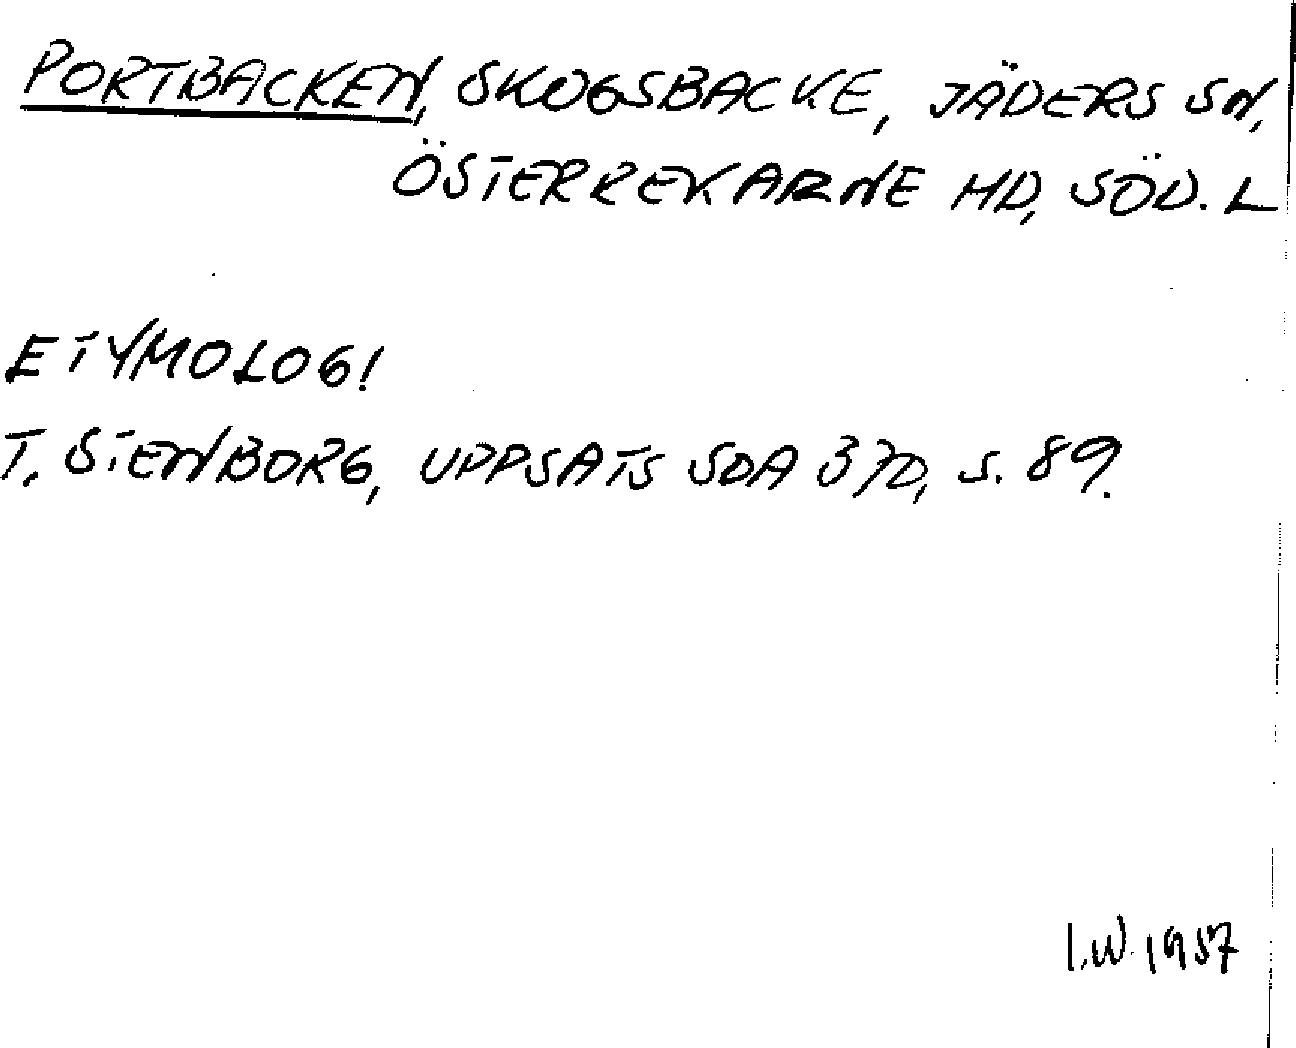 PORTBACKEN, SKOGSBACKE, JÄDERS SN,
ÖSTERREKARNE HD, SÖD. L
ETYMOLOGI
T. STENBORG, UPPSATS SOA 370, s. 89.
I.W. 1957